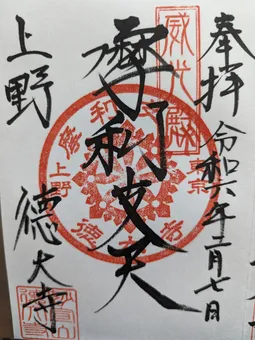 奉拝 令和六年二月七日
威光殿
摩利支天
東京
上野
上野 徳大寺